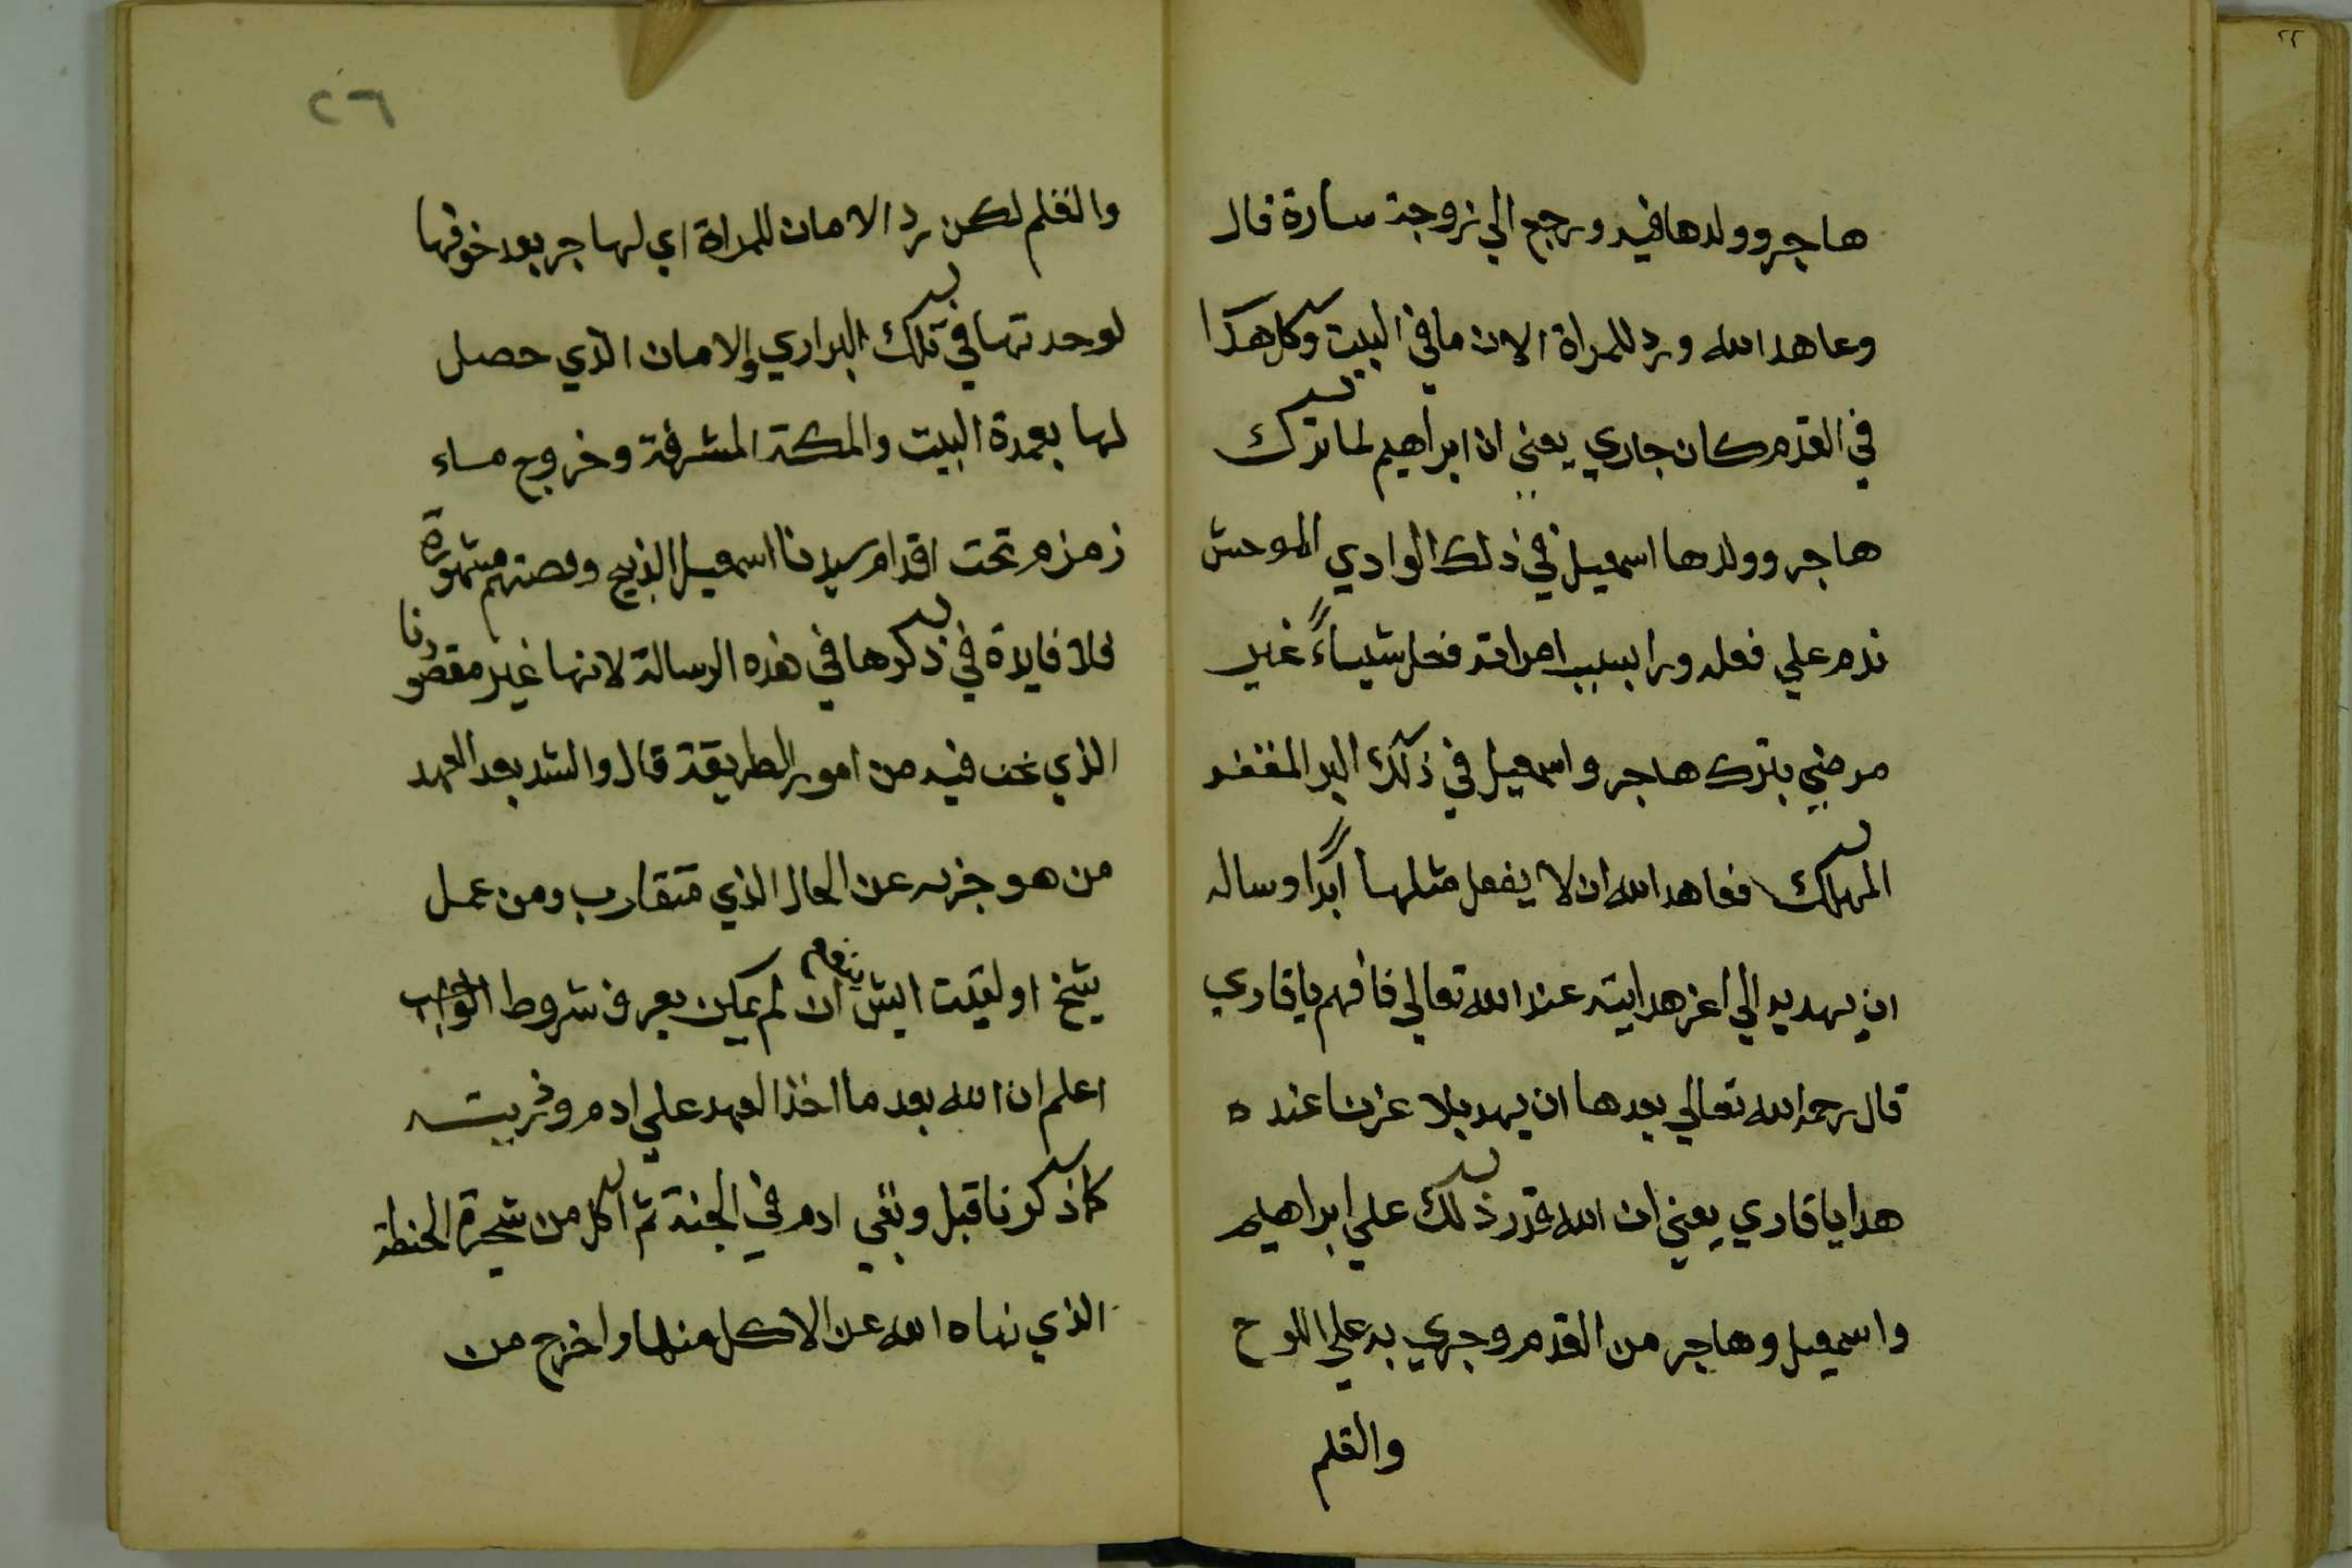 هاجر وولدها فيه ورجع الي زوجة سارة قال
وعاهد الله ورد للمراة الامان ما في البيت وكل هذا
في القدم كان جاري يعني ان ابراهيم لما ترك
هاجر وولدها اسمعيل في ذلك الوادي الموحش
ندم علي فعله ورا بسبب امراته فعل شياءً غير
مرضي بترك هاجر واسمعيل في ذلك البر المقفر
المهلك فعاهد الله ان لا يفعل مثلها ابدًا وساله
ان يهديه الي اعز هدايته عند الله تعالي فافهم يا قاري
قال رحمه الله تعالي بعدها ان يهد بلا عزنا عنده
هدا يا قاري يعني ان الله قدر ذلك علي ابراهيم
واسمعيل وهاجر من القدم وجري به علي اللوح
والقلم
٢٦
والقلم لكن رد الامان للمراة اي لهاجر بعد خوفها
لوحدتها في تلك البراري والامان الذي حصل
لها بعمرة البيت والمكة المشرفة وخروج ماء
زمزم تحت اقدام سيدنا اسمعيل الذبيح وقصتهم مشهورة
فلا فايدة في ذكرها في هذه الرسالة لانها غير مقصودنا
الذي نحن فيه من امور الطريقة قال والشد بعد العهد
من هو جزبه عن الحال الذي متقارب ومن عمل
شيخ او لقيت ايش ينفع ان لم يكن يعرف شروط الواجب
اعلم ان الله بعد ما اخذ العهد علي ادم وذريته
كما ذكرنا قبل وبقي ادم في الجنة ثم اكل من شجرة الحنطة
الذي نهاه الله عن الاكل منها واخرج من
٢٢